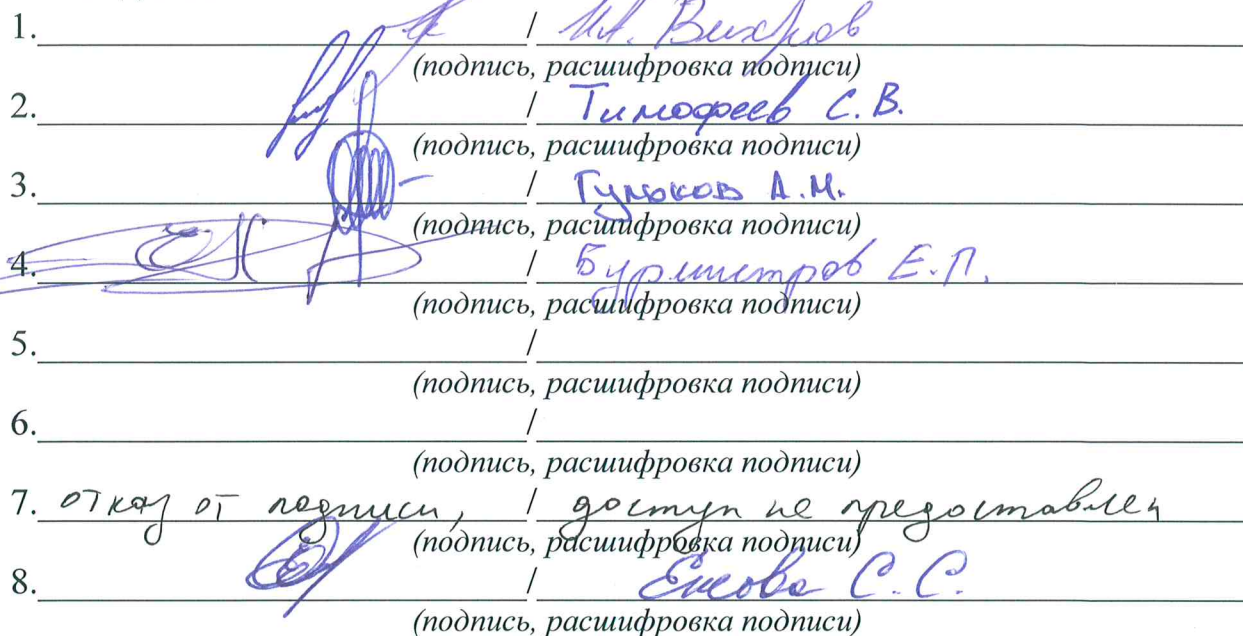 1. / И.А. Вихров
(подпись, расшифровка подписи)
2. / Тимофеев С.В.
(подпись, расшифровка подписи)
3. / Гулюков А.М.
(подпись, расшифровка подписи)
4. / Бурмистров Е.П.
(подпись, расшифровка подписи)
5. /
(подпись, расшифровка подписи)
6. /
(подпись, расшифровка подписи)
7. отказ от подписи, / доступ не предоставлен
(подпись, расшифровка подписи)
8. / С.С.
(подпись, расшифровка подписи)